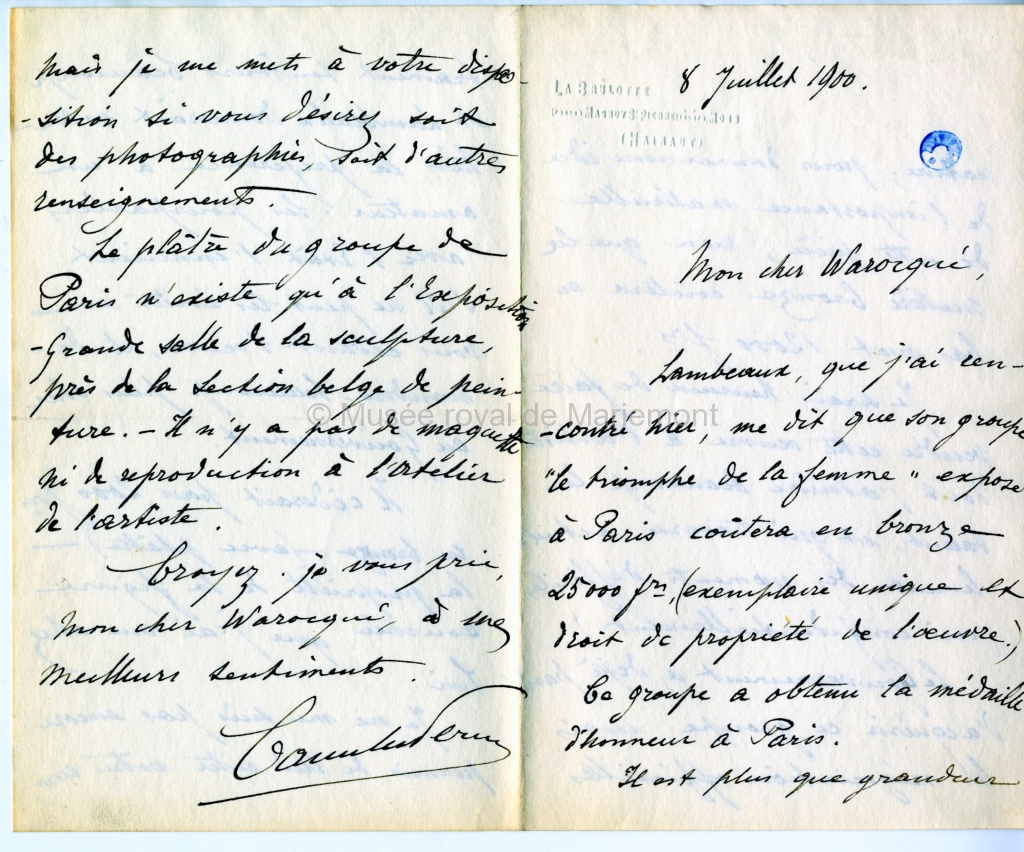 8 Juillet 1900.
LA BRULOTTE
MASNUY St PIERRE MONS
(HAINAUT)
Mon cher Warocqué,
Lambeaux, que j'ai ren-
-contré hier, me dit que son groupe
"le triomphe de la femme" exposé
à Paris coûtera en bronze
25000 frs, (exemplaire unique et
droit de propriété de l'œuvre.)
Ce groupe a obtenu la médaille
d'honneur à Paris.
Il est plus que grandeur
mais je me mets à votre dispo-
-sition si vous désirez soit
des photographies, soit d'autres
renseignements.
Le plâtre du groupe de
Paris n'existe qu'à l'Exposition
-Grande salle de la sculpture,
près de la section belge de pein-
ture. - Il n'y a pas de maquette
ni de reproduction à l'atelier
de l'artiste.
Croyez, je vous prie,
mon cher Warocqué, à mes
meilleurs sentiments.
© Musée royal de Mariemont